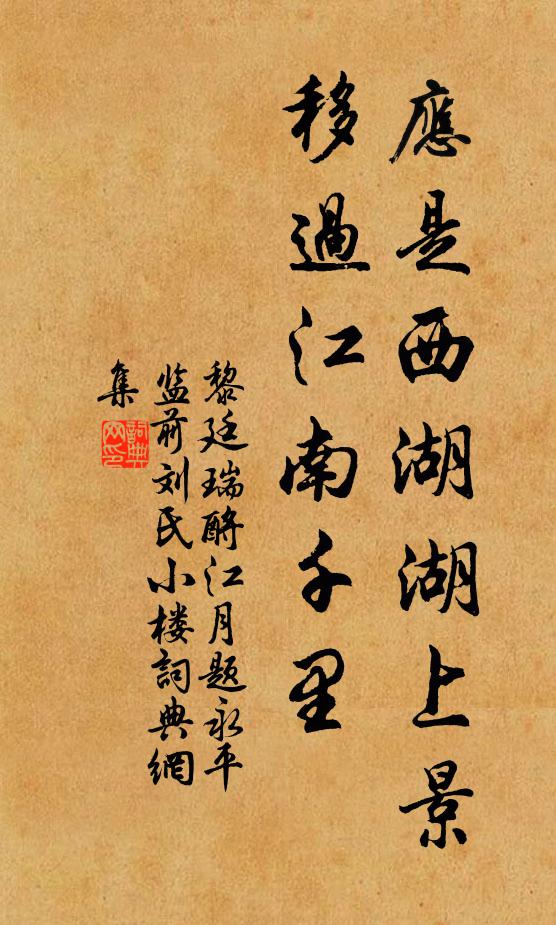 應是西湖湖上景
移過江南千里
黎廷瑞酹江月题永平
监前刘氏小楼詞典網
集
詞典網印